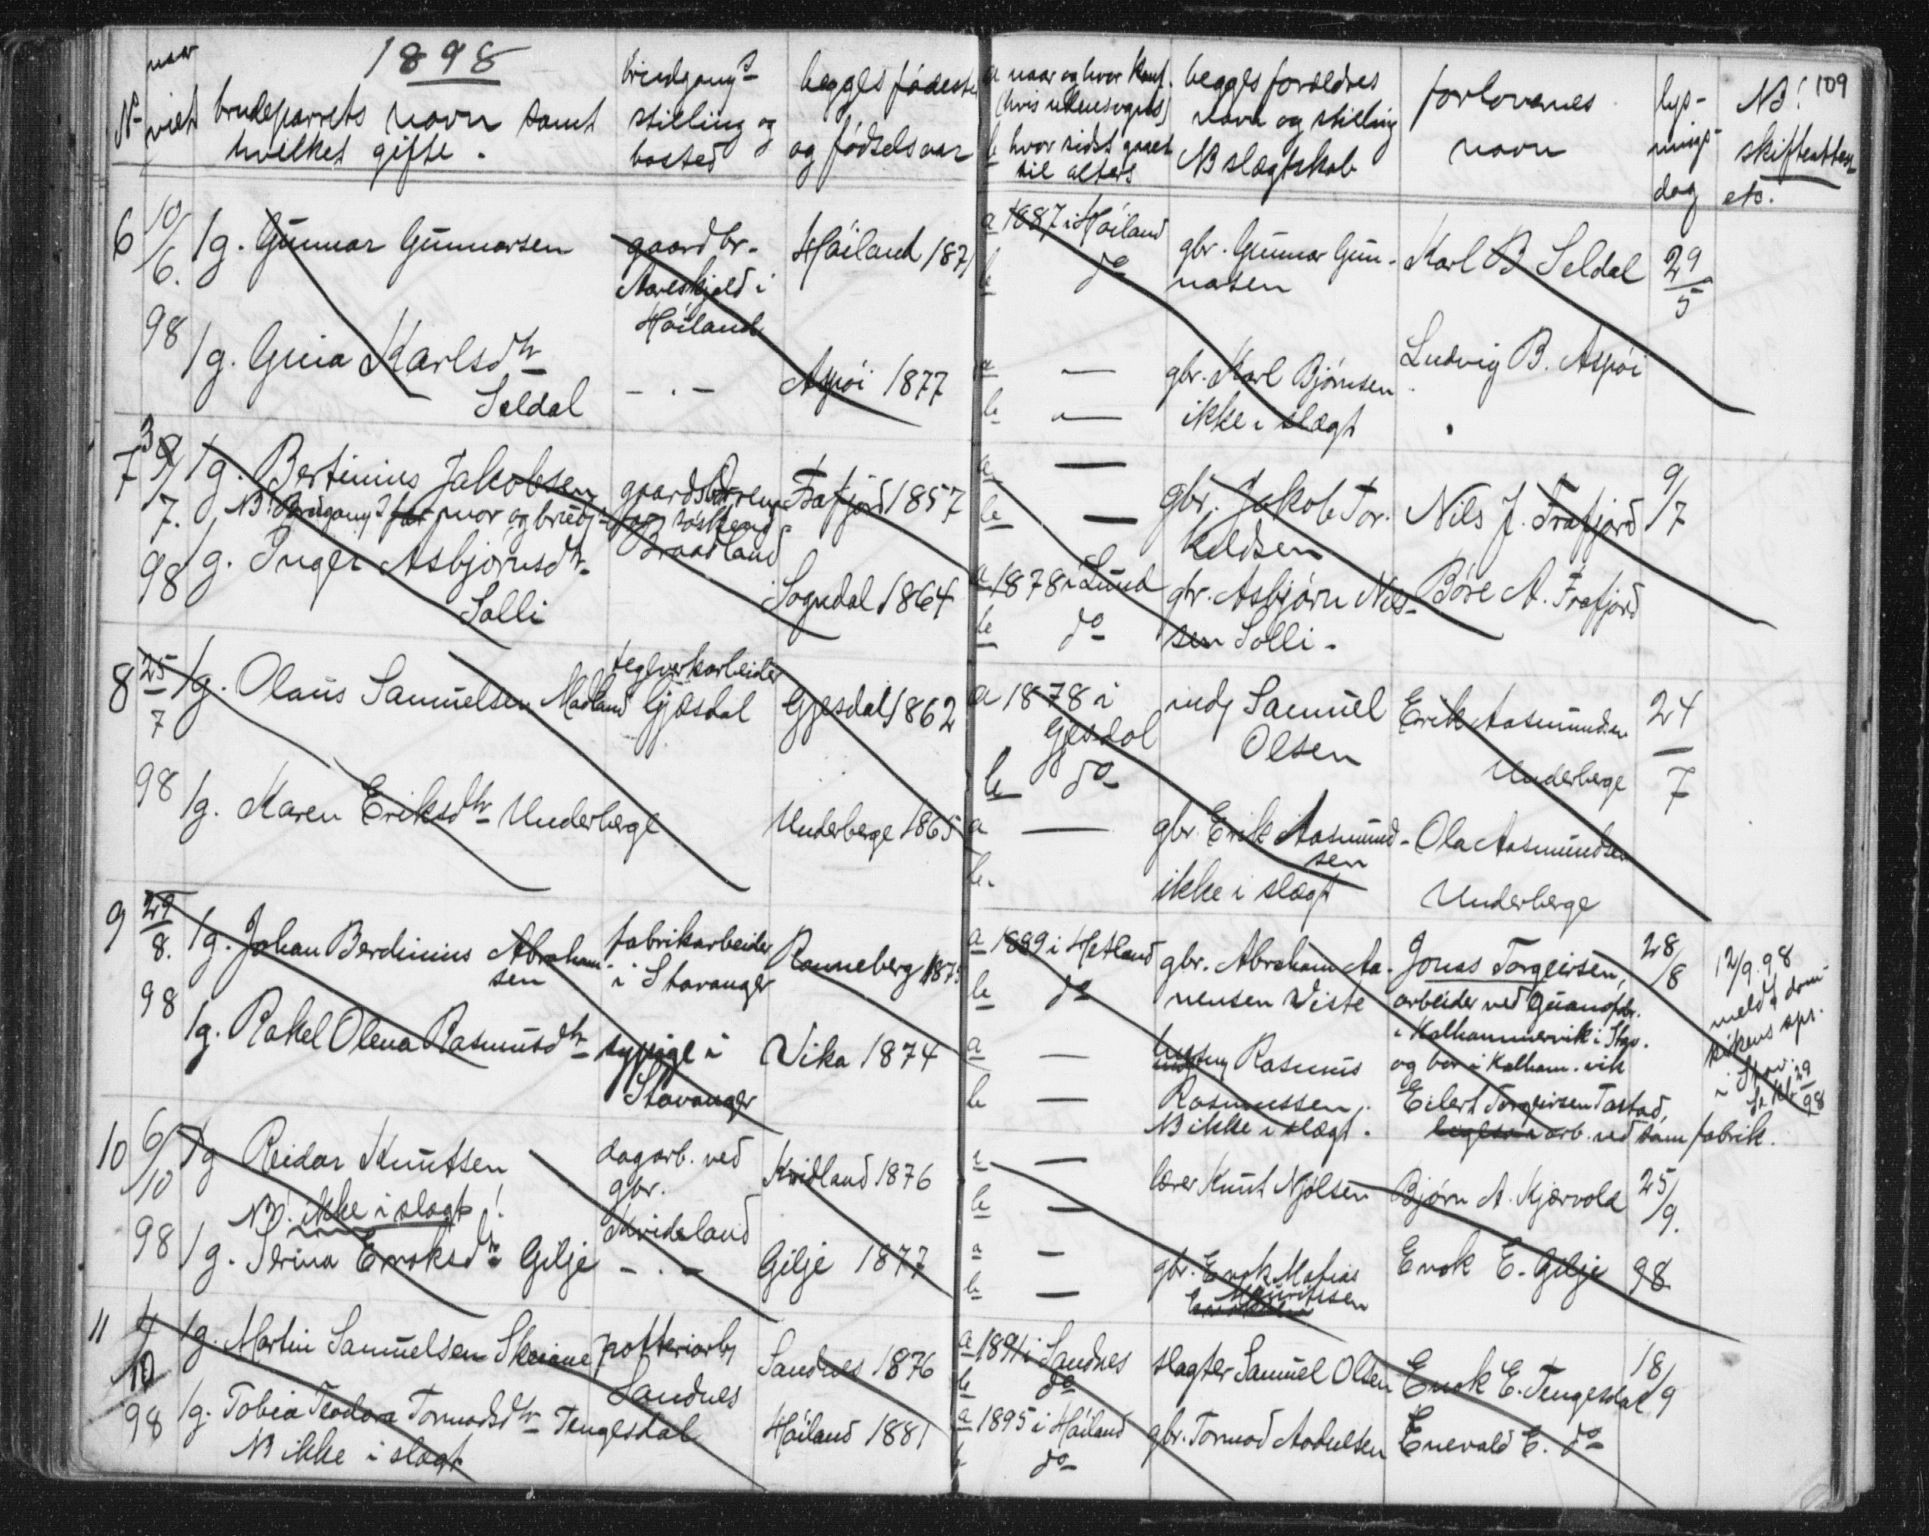 1898
109
No
naar
viet
brudeparrets navn samt
hvilket gifte.
brudgoms
stilling og
bosted
begges fødested
og fødselsaar
a naar og hvor konf.
b hvor sidst gaaet
til alters
begges forældres
navn og stilling
NB slægtskab
forlovernes
navn
lys-
nings-
dag
NB!
skifteattest
etc.
6
10/6.
98
1g. Gunnar Gunnarsen
gaardbr.
i
Høiland
Høiland 187
a 1887 i Høiland
b do
gbr. Gunnar Gun-
narsen
Karl B Seldal
29/5
1g. Gina Karlsdtr
Seldal
- . -
Aspøi 1877
a —
b —
gbr. Karl Bjørnsen
ikke i slægt
Ludvig B. Aspøi
7
7.
98
1g. Bertinius Jakobsen
NB! Brudgoms mor og brudens far søskend
gaardsb
Braadland
Frafjord 1857
a —
b —
gbr. Jakob Tor-
keldsen
Nils J. Frafjord
9/7
1g. Inger Asbjørnsdtr
Solli
Sogndal 1864
a 1878 i Lund
b do
gbr. Asbjørn Nils-
sen Solli.
Børe A. Frafjord
8
25/7
98
1g. Olaus Samuelsen Madland
teglverkarbeider
Gjæsdal
Gjesdal 1862
a 1878 i
Gjesdal
b do
indg Samuel
Olsen
Erik Aasmundsen
Underberge
24/7
1g. Karen Eriksdtr Underberge
Underberge 1865
a —
b.
gbr. Erik Aasmund-
sen
ikke i slægt
Ola Aasmundsen
Underberge
9
29/8.
98
1g. Johan Berdinius Abraham-
sen
fabrikarbeider
i Stavanger
Ranneberg 1875
a 1889 i Hetland
b do
gbr. Abraham Aa-
nensen Viste
Jonas Torgeirsen,
arbeider ved guanofabr.
i Kalhammervik i Stgr.
og bor i Kalham. vik
28/8
12/9.98
meldt dom-
sikens spr.
i Stav.
29
98
1g. Rakel Olena Rasmusdtr
sypige i
Stavanger
Vika 1874
a —
b —
Rasmus
Rasmussen.
NB ikke i slægt.
Eilert Torgeirsen Tastad,
arb. ved sam fabrik.
10
6/10
98
1g Reidar Knutsen
NB! ikke i slægt!
dagarb. ved
gbr.
Kvidland
Kvidland 1876
a —
b —
lærer Knut Njølsen
Bjørn A. Kjærvold
25/9.
98
1g. Serina Enoksdtr Gilje
- . -
Gilje 1877
a —
b —
gbr. Enok Matias
Mauritssen
Enok E. Gilje
11
10
98
1g. Martin Samuelsen Skeiane
potteriarb
Sandnes
Sandnes 1876
a 1891 i Sandnes
b do
slagter Samuel Olsen
Enok E. Tengesdal
18/9
1g. Tobia Teodora Tormodsdtr Tengesdal
NB ikke i slægt
Høiland 1881
a 1895 i Høiland
b do
gbr. Tormod Aadnelsen
Enevald E. do